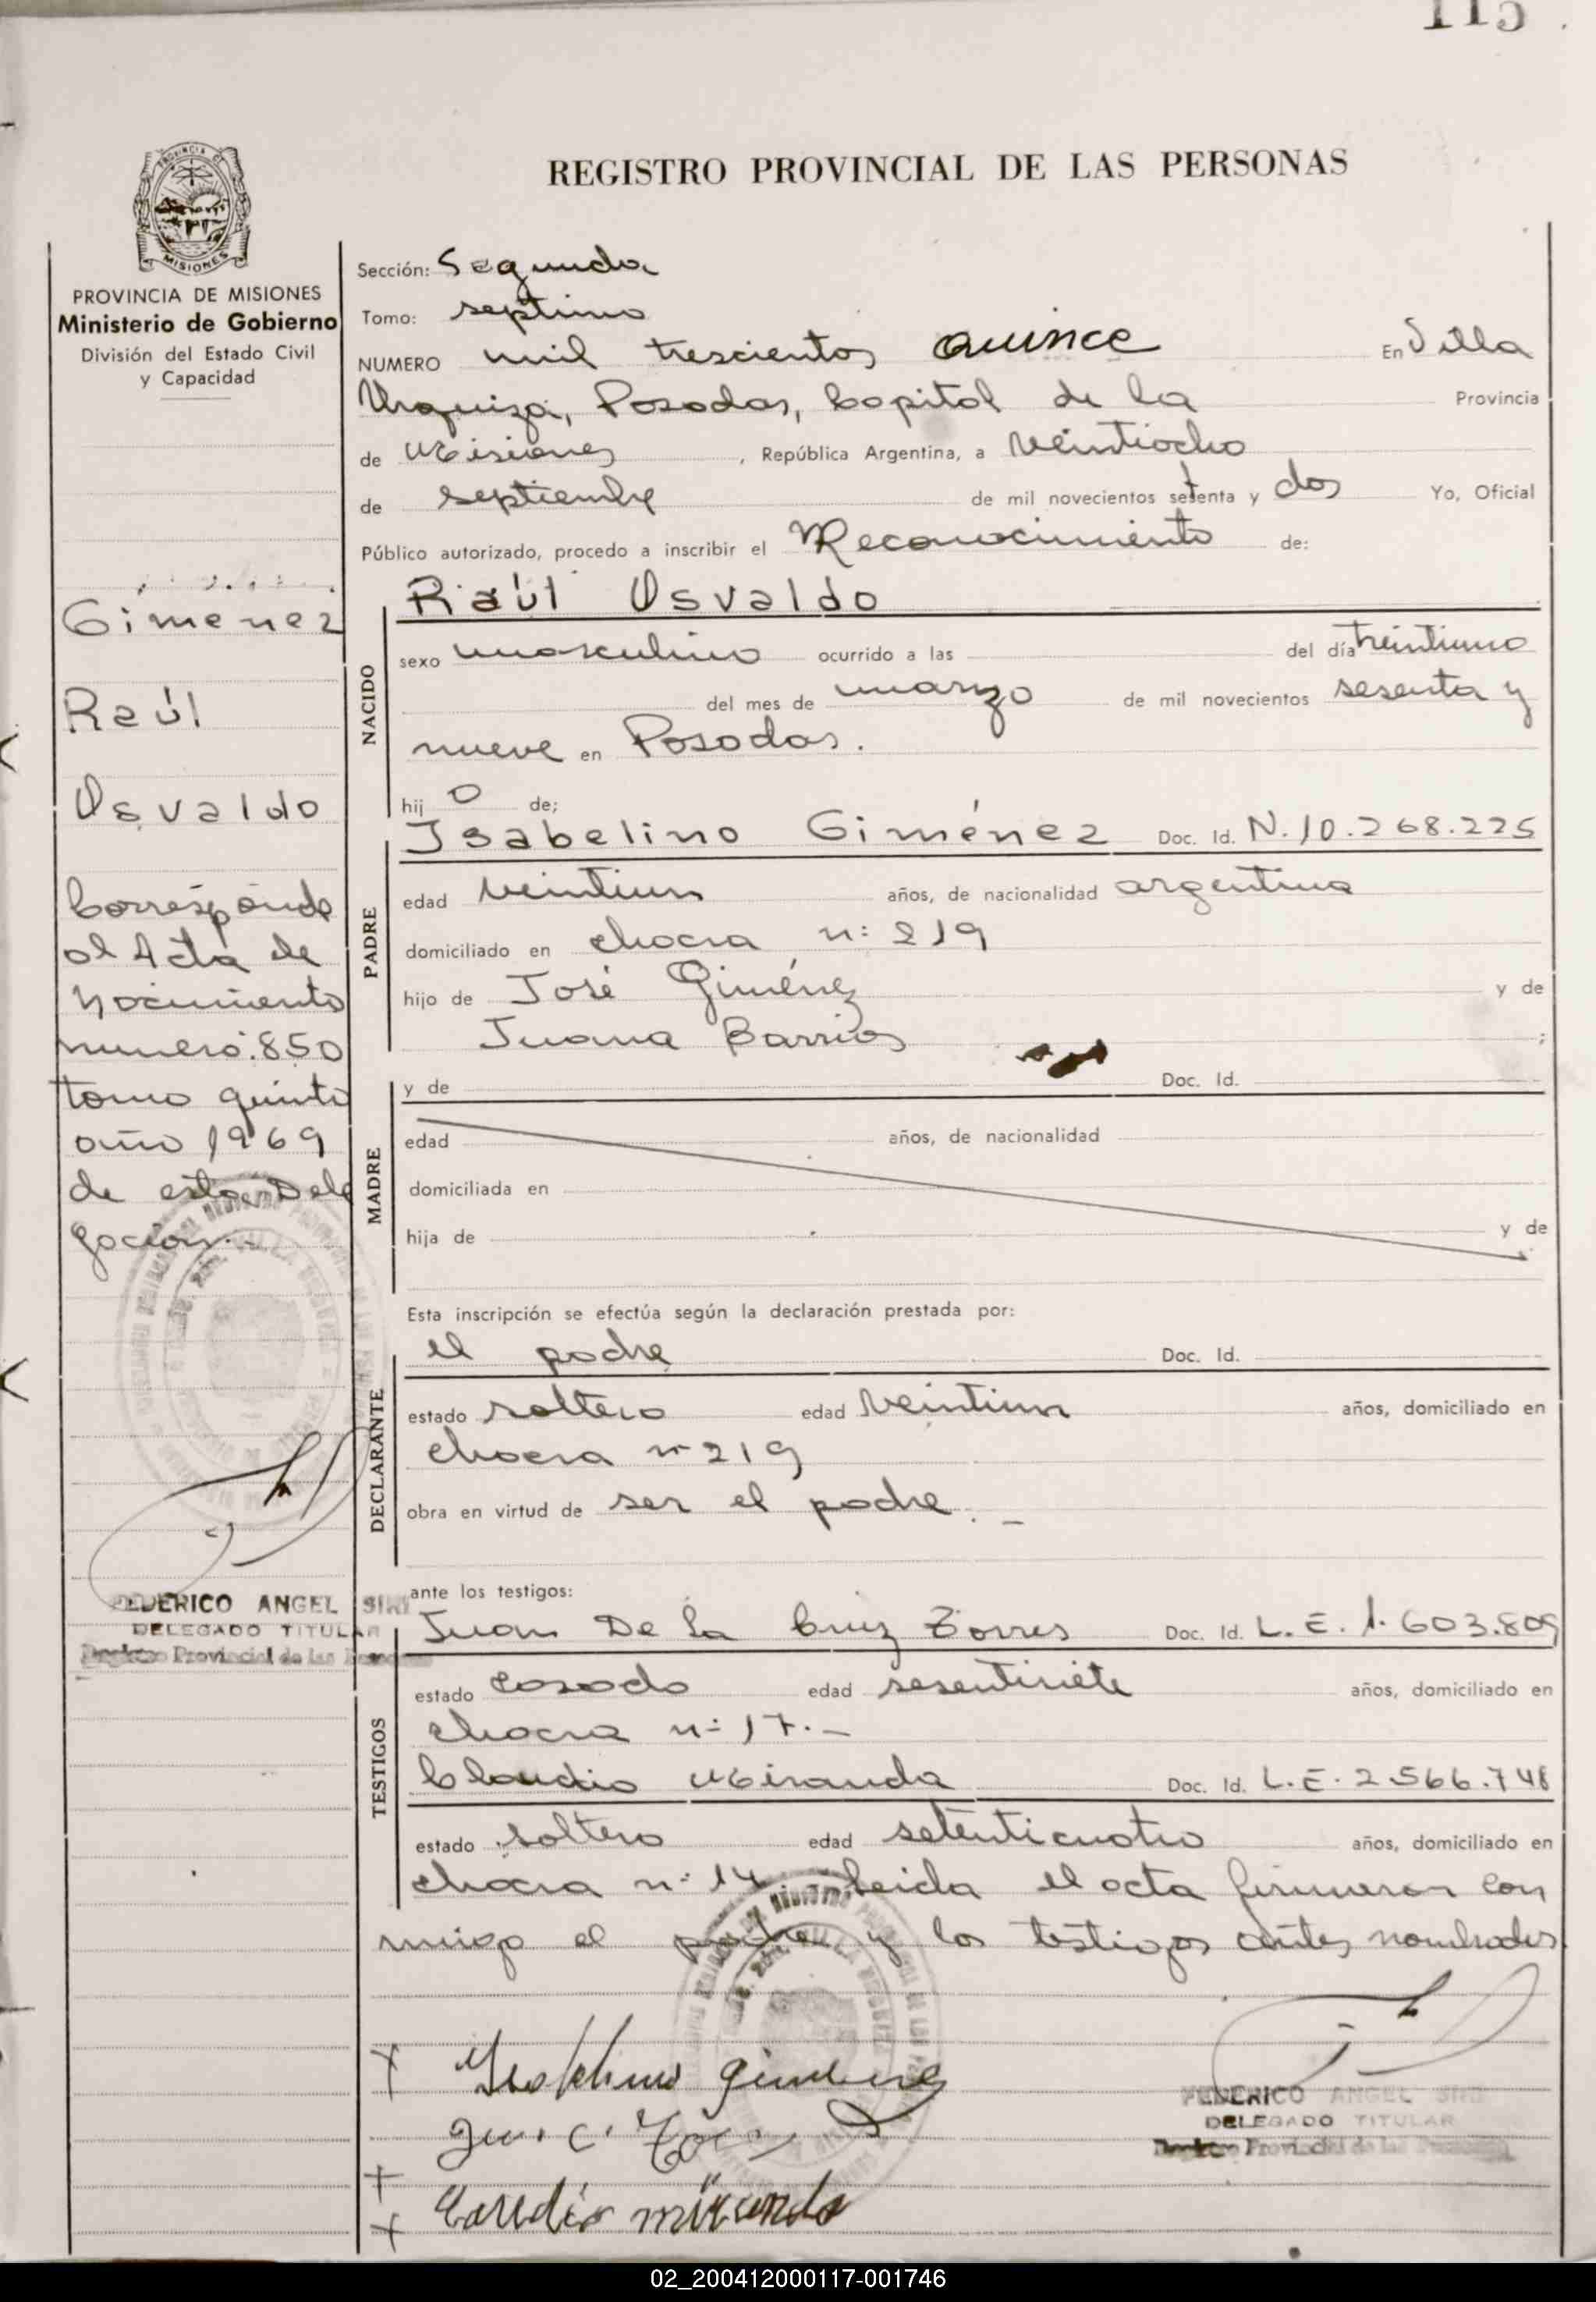 115
REGISTRO PROVINCIAL DE LAS PERSONAS
PROVINCIA DE MISIONES
MISIONES
PROVINCIA DE MISIONES
Ministerio de Gobierno
División del Estado Civil
y Capacidad
Gimenez
Raúl
Osvaldo
Corresponde
al Acta de
Nacimiento
numero: 850
tomo quinto
año 1969
de esta Dele
gacion.-
FEDERICO ANGEL SIRI
DELEGADO TITULAR
Registro Provincial de las Personas
Sección: Segunda
Tomo: septimo
NUMERO mil trescientos quince En Villa
Urquiza, Posadas, Capital de la Provincia
de Misiones, República Argentina, a veintiocho
de septiembre de mil novecientos setenta y dos Yo, Oficial
Público autorizado, procedo a inscribir el Reconocimiento de:
Raúl Osvaldo
NACIDO
sexo masculino ocurrido a las del día treintiuno
del mes de marzo de mil novecientos sesenta y
nueve en Posadas.
hij o de;
Isabelino Giménez Doc. Id. N. 10.268.225
PADRE
edad veintiun años, de nacionalidad argentina
domiciliado en chacra n: 219
hijo de José Giménez y de
Juana Barrios ;
y de Doc. Id.
MADRE
edad años, de nacionalidad
domiciliada en
hija de y de
Esta inscripción se efectúa según la declaración prestada por:
el padre Doc. Id.
DECLARANTE
estado soltero edad veintiun años, domiciliado en
chacra n- 219
obra en virtud de ser el padre. -
ante los testigos:
Juan De la Cruz Torres Doc. Id. L. E. 1.603.809
TESTIGOS
estado casado edad sesentisiete años, domiciliado en
chacra n: 17.-
Claudio Miranda Doc. Id. L.E. 2.566.748
estado soltero edad setenticuatro años, domiciliado en
chacra n: 14 Leida el acta firmaron con
migo el padre y los testigos antes nombrados
Isabelino Gimenez
FEDERICO ANGEL SIRI
DELEGADO TITULAR
Registro Provincial de las Personas
miranda
02_200412000117-001746